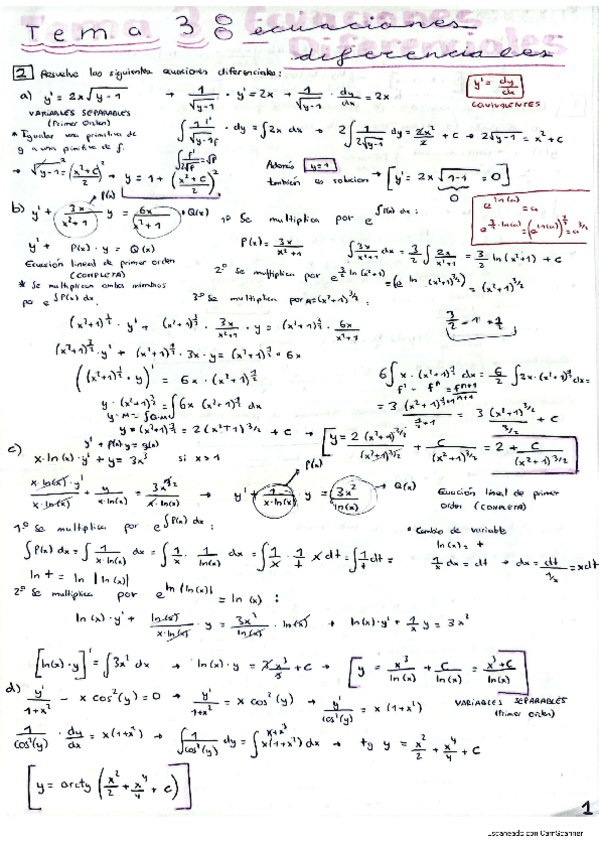 Tema 3: ecuaciones
diferenciales
2 Resuelve las siguientes ecuaciones diferenciales:
y' = dy/dx
EQUIVALENTES
a) y' = 2x√(y-1) → 1/√(y-1) · y' = 2x → 1/√(y-1) · dy/dx = 2x
VARIABLES SEPARABLES
(Primer Orden)
* Igualar una primitiva de
y a una primitiva de f.
∫ 1/√(y-1) · dy = ∫2x dx → 2∫ 1/(2√(y-1)) dy = 2x²/2 + c → 2√(y-1) = x² + c
∫ f'/(2√f) = √f
→ √(y-1)² = ((x²+c)/2)² → y = 1 + ((x²+c)/2)²
Además y=1
también es solución → [y' = 2x √(1-1) = 0]
0
b) y' + 3x/(x²+1) y = 6x/(x²+1)
P(x)
Q(x)
1º Se multiplica por e^∫P(x) dx :
e^ln(a) = a
e^(3/2·ln(a)) = (e^ln(a))^3/2 = a^3/2
y' + P(x) · y = Q(x)
Ecuación lineal de primer orden
(COMPLETA)
P(x) = 3x/(x²+1)
∫ 3x/(x²+1) dx = 3/2 ∫ 2x/(x²+1) = 3/2 ln(x²+1) + c
2º Se multiplica por e^(3/2 ln(x²+1)) = (e^ln (x²+1)^3/2) = (x²+1)^3/2
* Se multiplican ambos miembros
por e^∫P(x) dx
3º Se multiplica por M=(x²+1)^3/2 :
(x²+1)^3/2 · y' + (x²+1)^3/2 · 3x/(x²+1) · y = (x²+1)^3/2 · 6x/(x²+1)
3/2 - 1 = 1/2
(x²+1)^3/2 · y' + (x²+1)^1/2 · 3x · y = (x²+1)^1/2 · 6x
((x²+1)^3/2 · y)' = 6x · (x²+1)^1/2
6∫x · (x²+1)^1/2 dx = 6/2 ∫2x·(x²+1)^1/2 dx =
y · (x²+1)^3/2 = ∫6x (x²+1)^1/2 dx
y · M = ∫Q·M
= 3 (x²+1)^(1/2+1)/(1/2+1) = 3 (x²+1)^3/2/(3/2) + c
y · (x²+1)^3/2 = 2(x²+1)^3/2 + c → [y = 2(x²+1)^3/2/(x²+1)^3/2 + c/(x²+1)^3/2 = 2 + c/(x²+1)^3/2]
y' + P(x)·y = q(x)
c) x·ln(x)·y' + y = 3x³ si x>1
x·ln(x)·y'/(x·ln(x)) + y/(x·ln(x)) = 3x³/(x·ln(x)) → y' + 1/(x·ln(x)) · y = 3x²/ln(x)
P(x)
Q(x)
Ecuación lineal de primer
orden (COMPLETA)
1º Se multiplica por e^∫P(x) dx :
* Cambio de variable
ln(x) = t
∫P(x) dx = ∫ 1/(x·ln(x)) dx = ∫ 1/x · 1/ln(x) dx = ∫ 1/x · 1/t x dt = ∫ 1/t dt =
1/x dx = dt → dx = dt/(1/x) = xdt
ln t = ln |ln(x)|
2º Se multiplica por e^ln|ln(x)| = ln(x) :
ln(x)·y' + ln(x)/(x·ln(x)) · y = 3x²/ln(x) · ln(x) → ln(x)·y' + 1/x y = 3x²
[ln(x)·y]' = ∫3x² dx → ln(x)·y = 3x³/3 + c → [y = x³/ln(x) + c/ln(x) = (x³+c)/ln(x)]
d) y'/(1+x²) - x cos²(y) = 0 → y'/(1+x²) = x cos²(y) → y'/cos²(y) = x(1+x²)
VARIABLES SEPARABLES
(Primer Orden)
1/cos²(y) · dy/dx = x(1+x²) → ∫ 1/cos²(y) dy = ∫ x(1+x²) dx → tg y = x²/2 + x⁴/4 + c
x+x³
[y = arctg (x²/2 + x⁴/4 + c)]
1
Escaneado con CamScanner